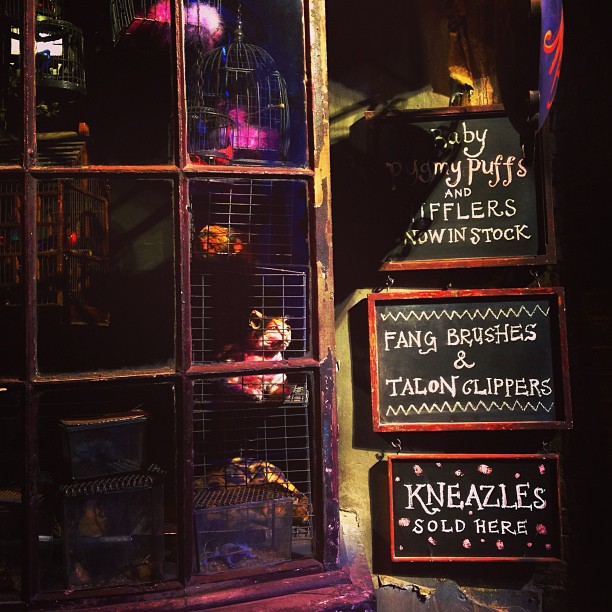 Baby
Pygmy Puffs
AND
NIFFLERS
NOW IN STOCK
FANG BRUSHES
&
TALON CLIPPERS
KNEAZLEs
SOLD HERE